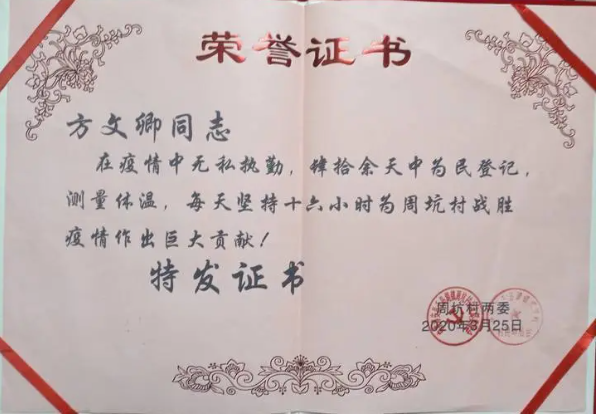 荣誉证书
方文卿同志
在疫情中无私执勤，肆拾余天中为民登记，
测量体温，每天坚持十六小时为周坑村战胜
疫情作出巨大贡献！
特发证书
周坑村两委
2020年3月25日